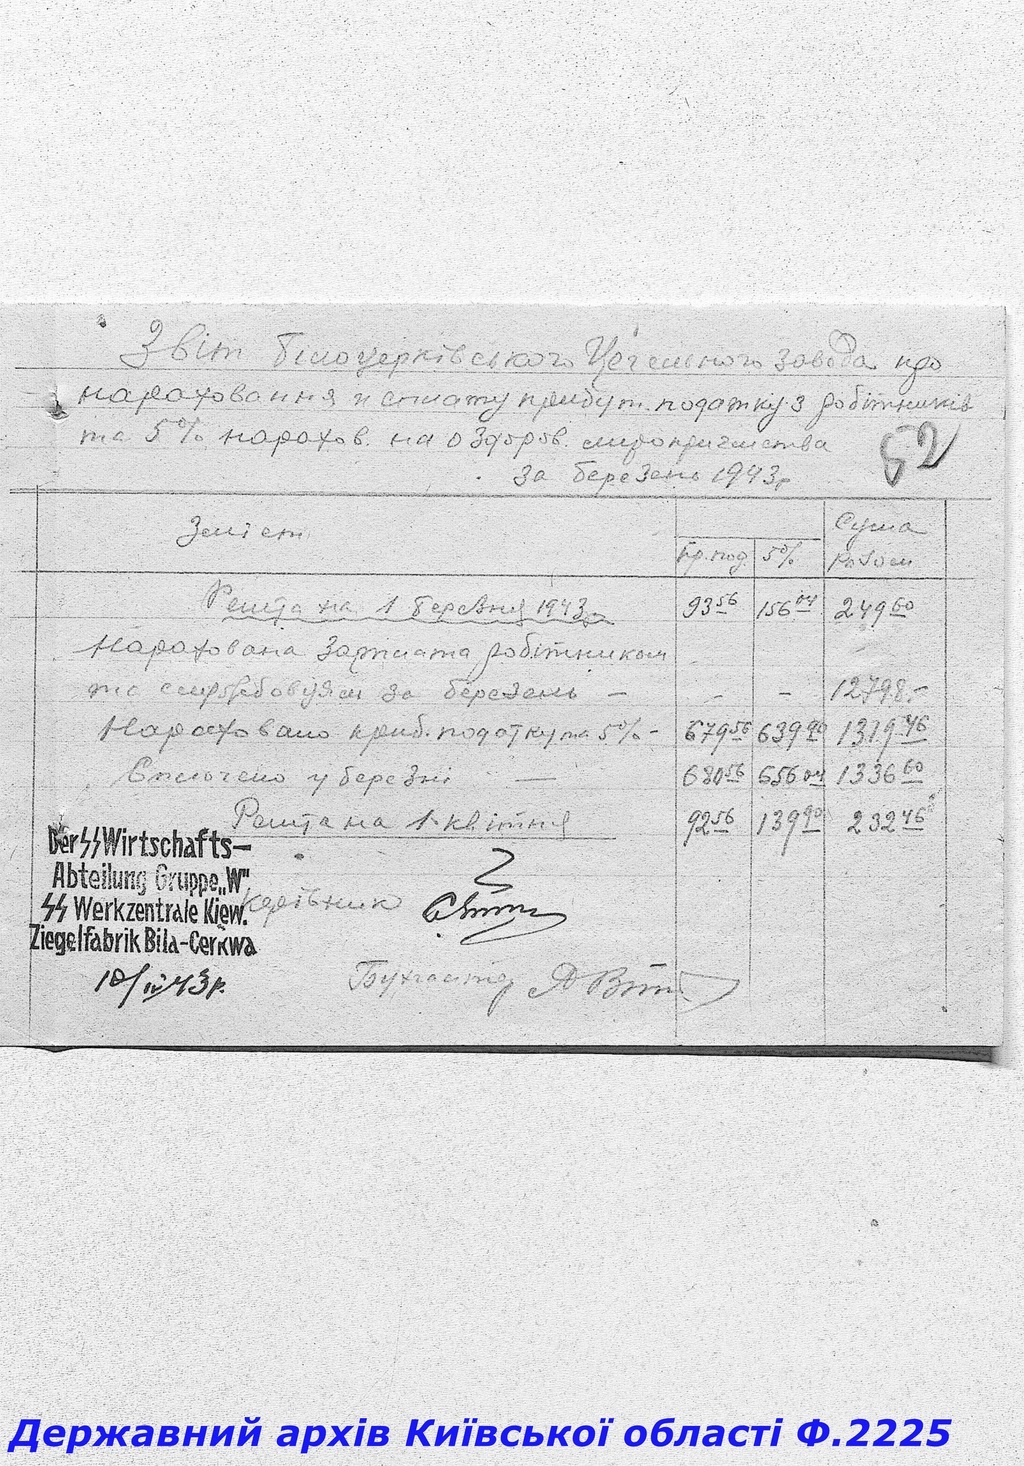 Звіт Білоцерківського Цегельного завода про
нараховання и сплату прибут. податку з робітників
та 5% нарахов. на оздоров.
за березень 1943р
52
Зміст
Пр. под. 5% Сума разом
Решта на 1 березня 1943р. 93 56 156 04 249 60
Нарахована зарплата робітникам
та службовцям за березень – – – 12798.-
Нараховано приб. податку та 5% - 679 56 639 90 1319 46
Сплочено у березні — 680 56 656 04 1336 60
Решта на 1 квітня 92 56 139 90 232 46
Der SS Wirtschafts–
Abteilung Gruppe „W“
SS Werkzentrale Kiew.
Ziegelfabrik Bila-Cerkwa
Керівник
10/IV 43р.
Бухгалтер
Державний архів Київської області Ф.2225